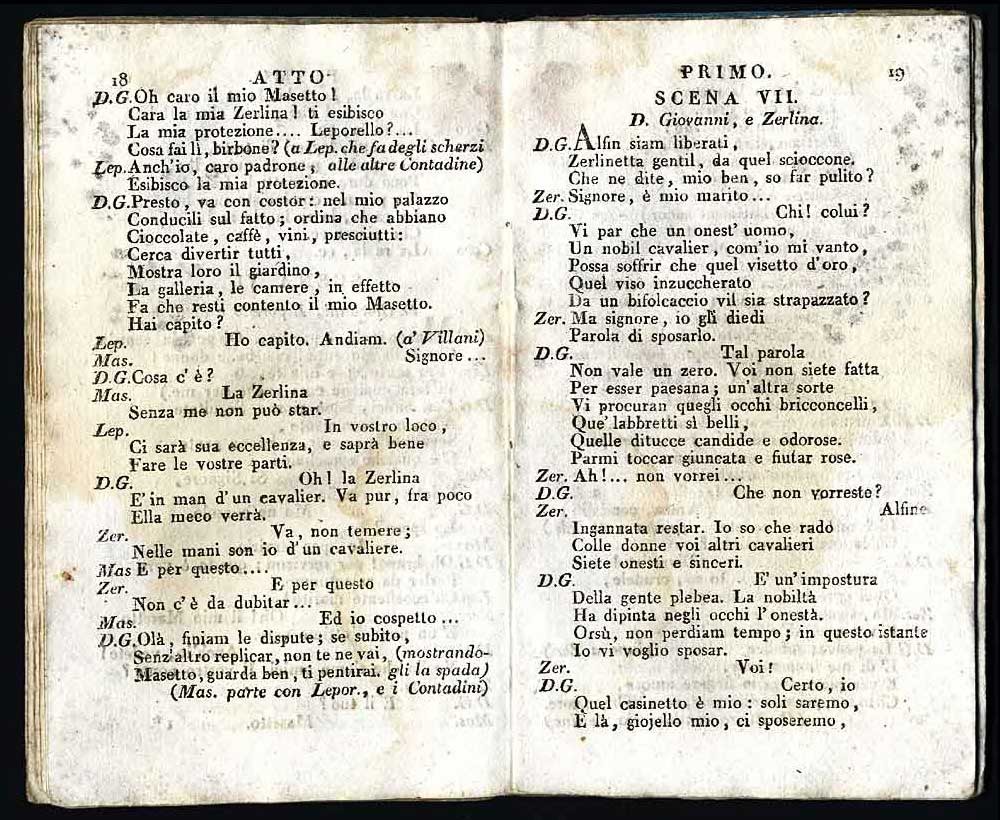 18 ATTO
D.G. Oh caro il mio Masetto!
Cara la mia Zerlina! ti esibisco
La mia protezione.... Leporello?...
Cosa fai lì, birbone? (a Lep. che fa degli scherzi
Lep. Anch'io, caro padrone, alle altre Contadine)
Esibisco la mia protezione.
D.G. Presto, va con costor: nel mio palazzo
Conducili sul fatto; ordina che abbiano
Cioccolate, caffè, vini, presciutti:
Cerca divertir tutti,
Mostra loro il giardino,
La galleria, le camere, in effetto
Fa che resti contento il mio Masetto.
Hai capito?
Lep. Ho capito. Andiam. (a' Villani)
Mas. Signore...
D.G. Cosa c'è?
Mas. La Zerlina
Senza me non può star.
Lep. In vostro loco,
Ci sarà sua eccellenza, e saprà bene
Fare le vostre parti.
D.G. Oh! la Zerlina
E' in man d'un cavalier. Va pur, fra poco
Ella meco verrà.
Zer. Va, non temere;
Nelle mani son io d'un cavaliere.
Mas E per questo....
Zer. E per questo
Non c'è da dubitar...
Mas. Ed io cospetto...
D.G. Olà, finiam le dispute; se subito,
Senz'altro replicar, non te ne vai, (mostrando-
Masetto, guarda ben, ti pentirai. gli la spada)
(Mas. parte con Lepor., e i Contadini)
PRIMO. 19
SCENA VII.
D. Giovanni, e Zerlina.
D.G. Alfin siam liberati,
Zerlinetta gentil, da quel scioccone.
Che ne dite, mio ben, so far pulito?
Zer. Signore, è mio marito...
D.G. Chi! colui?
Vi par che un onest' uomo,
Un nobil cavalier, com'io mi vanto,
Possa soffrir che quel visetto d'oro,
Quel viso inzuccherato
Da un bifolcaccio vil sia strapazzato?
Zer. Ma signore, io gli diedi
Parola di sposarlo.
D.G. Tal parola
Non vale un zero. Voi non siete fatta
Per esser paesana; un'altra sorte
Vi procuran quegli occhi bricconcelli,
Que' labbretti sì belli,
Quelle ditucce candide e odorose.
Parmi toccar giuncata e fiutar rose.
Zer. Ah!... non vorrei...
D.G. Che non vorreste?
Zer. Alfine
Ingannata restar. Io so che rado
Colle donne voi altri cavalieri
Siete onesti e sinceri.
D.G. E' un' impostura
Della gente plebea. La nobiltà
Ha dipinta negli occhi l'onestà.
Orsù, non perdiam tempo; in questo istante
Io vi voglio sposar.
Zer. Voi!
D.G. Certo, io
Quel casinetto è mio: soli saremo,
E là, giojello mio, ci sposeremo,